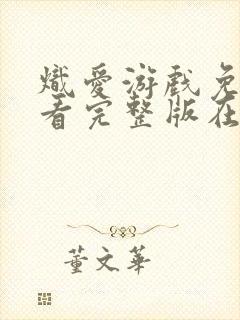 熾愛游戲免
看完整版在
董文華